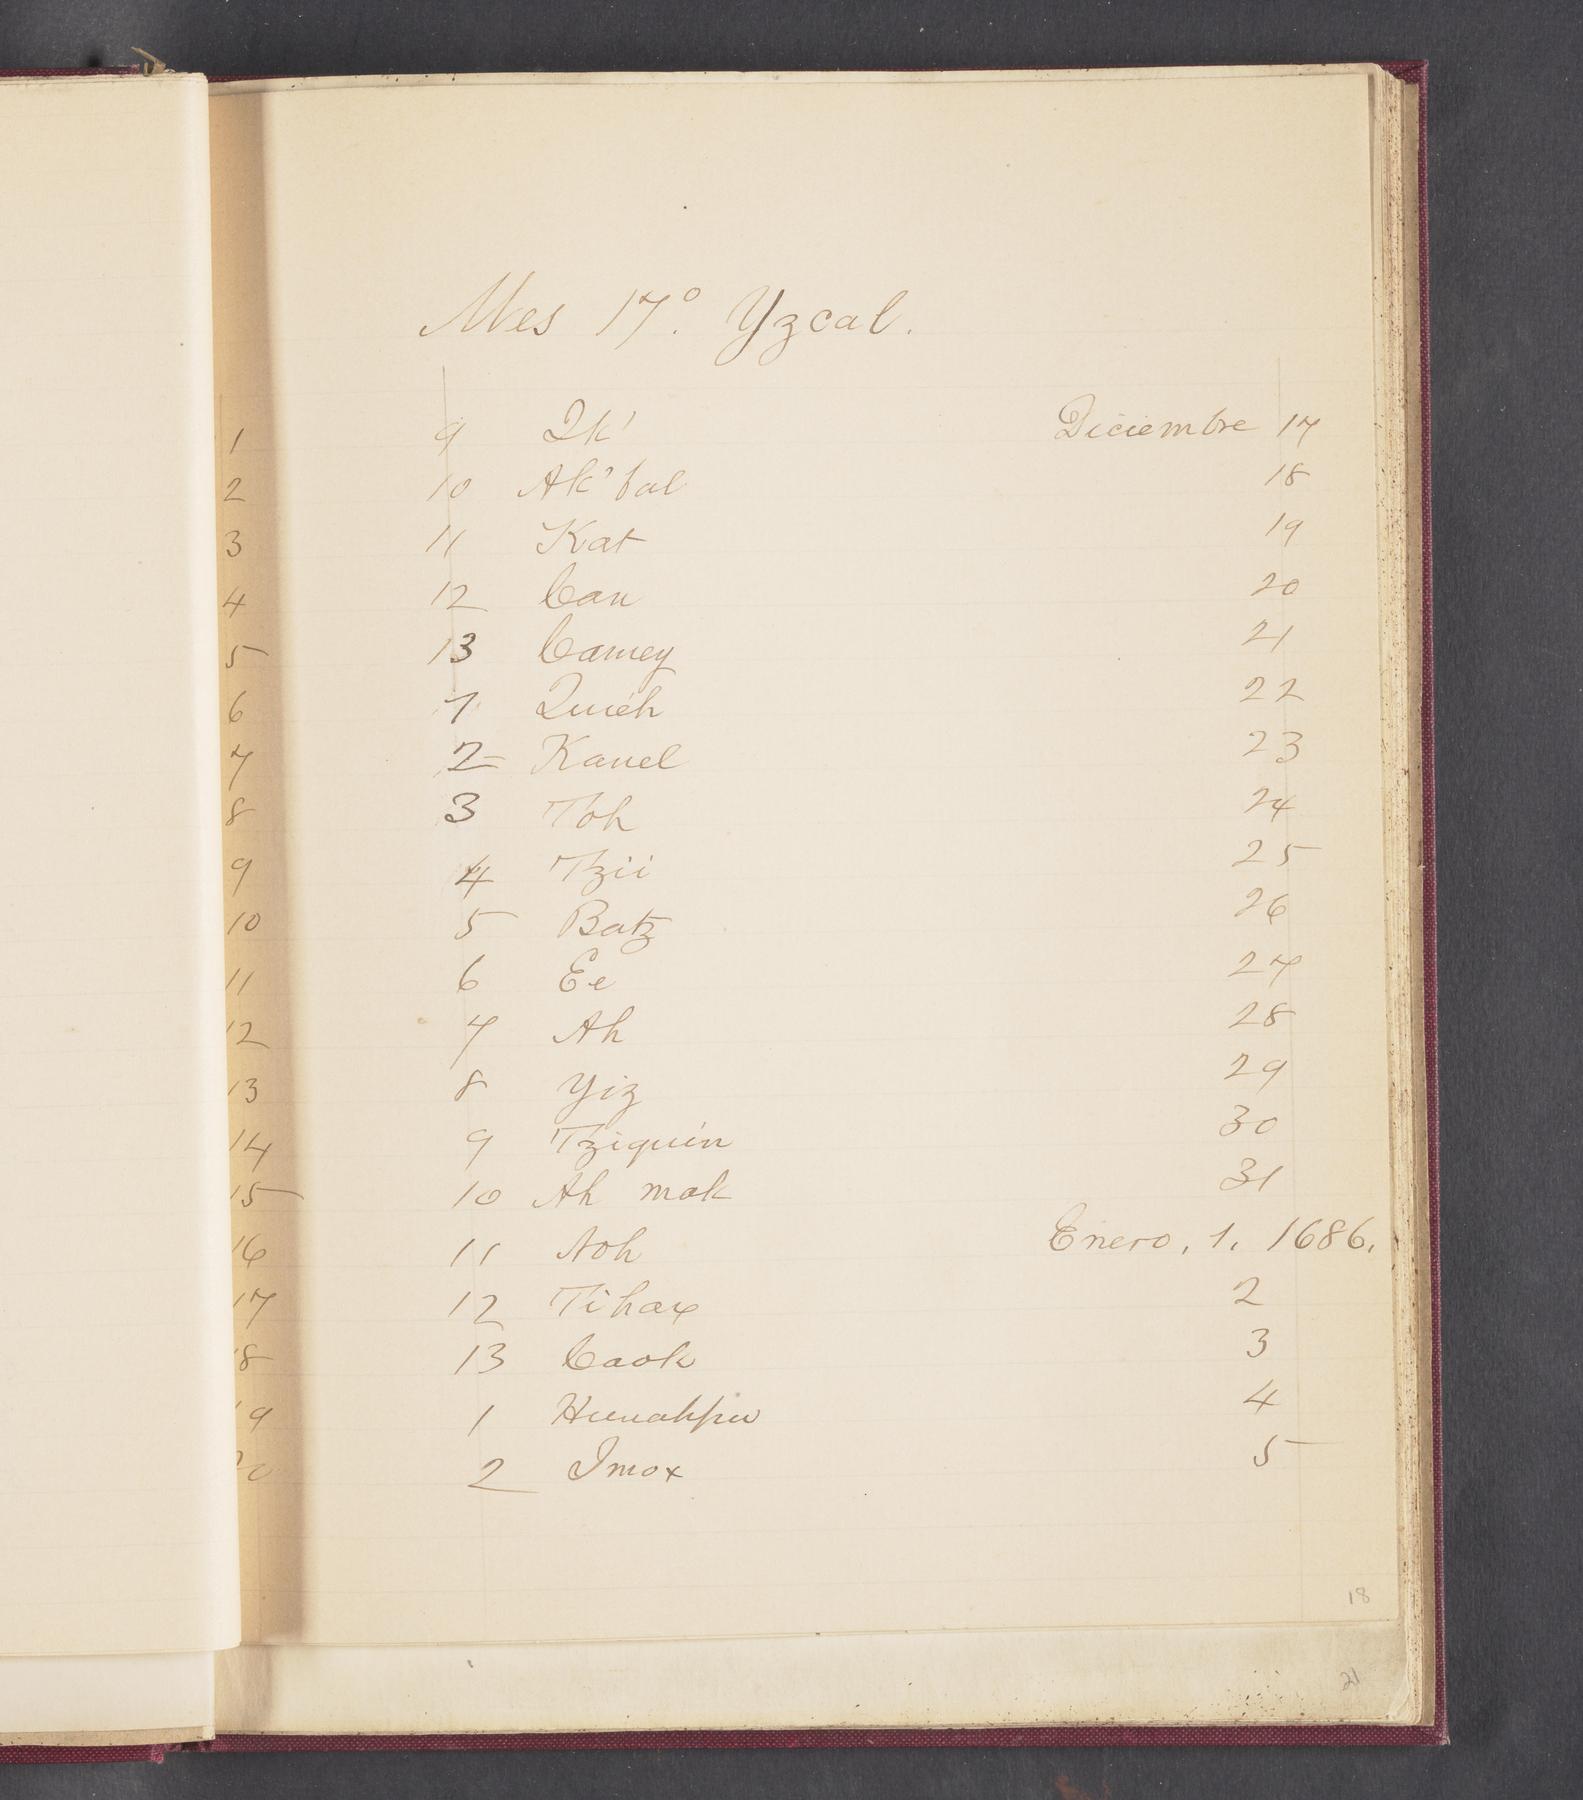 Mes 17º. Yzcal.
1 9 Ik' Diciembre 17
2 10 Ak'bal 18
3 11 Kat 19
4 12 Can 20
5 13 Camey 21
6 1 Quieh 22
7 2 Kanel 23
8 3 Toh 24
9 4 Tzii 25
10 5 Batz 26
11 6 Ee 27
12 7 Ah 28
13 8 Yiz 29
14 9 Tziquin 30
15 10 Ah mak 31
16 11 Noh Enero, 1. 1686.
17 12 Tihax 2
18 13 Caok 3
19 1 Hunahpu 4
20 2 Imox 5
18
21